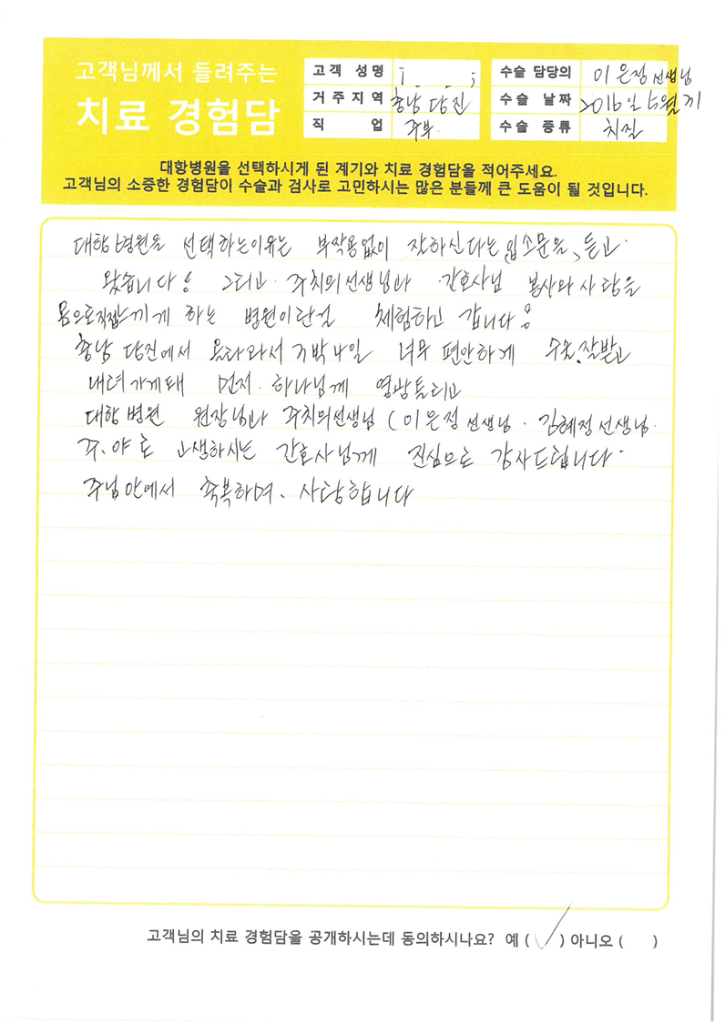 고객님께서 들려주는
치료 경험담
고객 성명
거주지역 충남 당진
직 업 주부
수술 담당의 이은정 선생님
수술 날짜
수술 종류 치질
대항병원을 선택하시게 된 계기와 치료 경험담을 적어주세요.
고객님의 소중한 경험담이 수술과 검사로 고민하시는 많은 분들께 큰 도움이 될 것입니다.
대항병원을 선택하는이유는 부작용없이 잘하신다는 입소문을 듣고
왔습니다. 그리고 주치의선생님과 간호사님 봉사와 사랑을
몸으로직접느끼게 하는 병원이란걸 체험하고 갑니다.
충남 당진에서 올라와서 너무 편안하게 수술.잘받고
먼저 하나님께 영광돌리고
대항병원 원장님과 주치의선생님 (이은정선생님. 김혜정선생님.
주.야로 고생하시는 간호사님께 진심으로 감사드립니다.
주님안에서 축복하며. 사랑합니다
고객님의 치료 경험담을 공개하시는데 동의하시나요? 예 (✓) 아니오 ( )